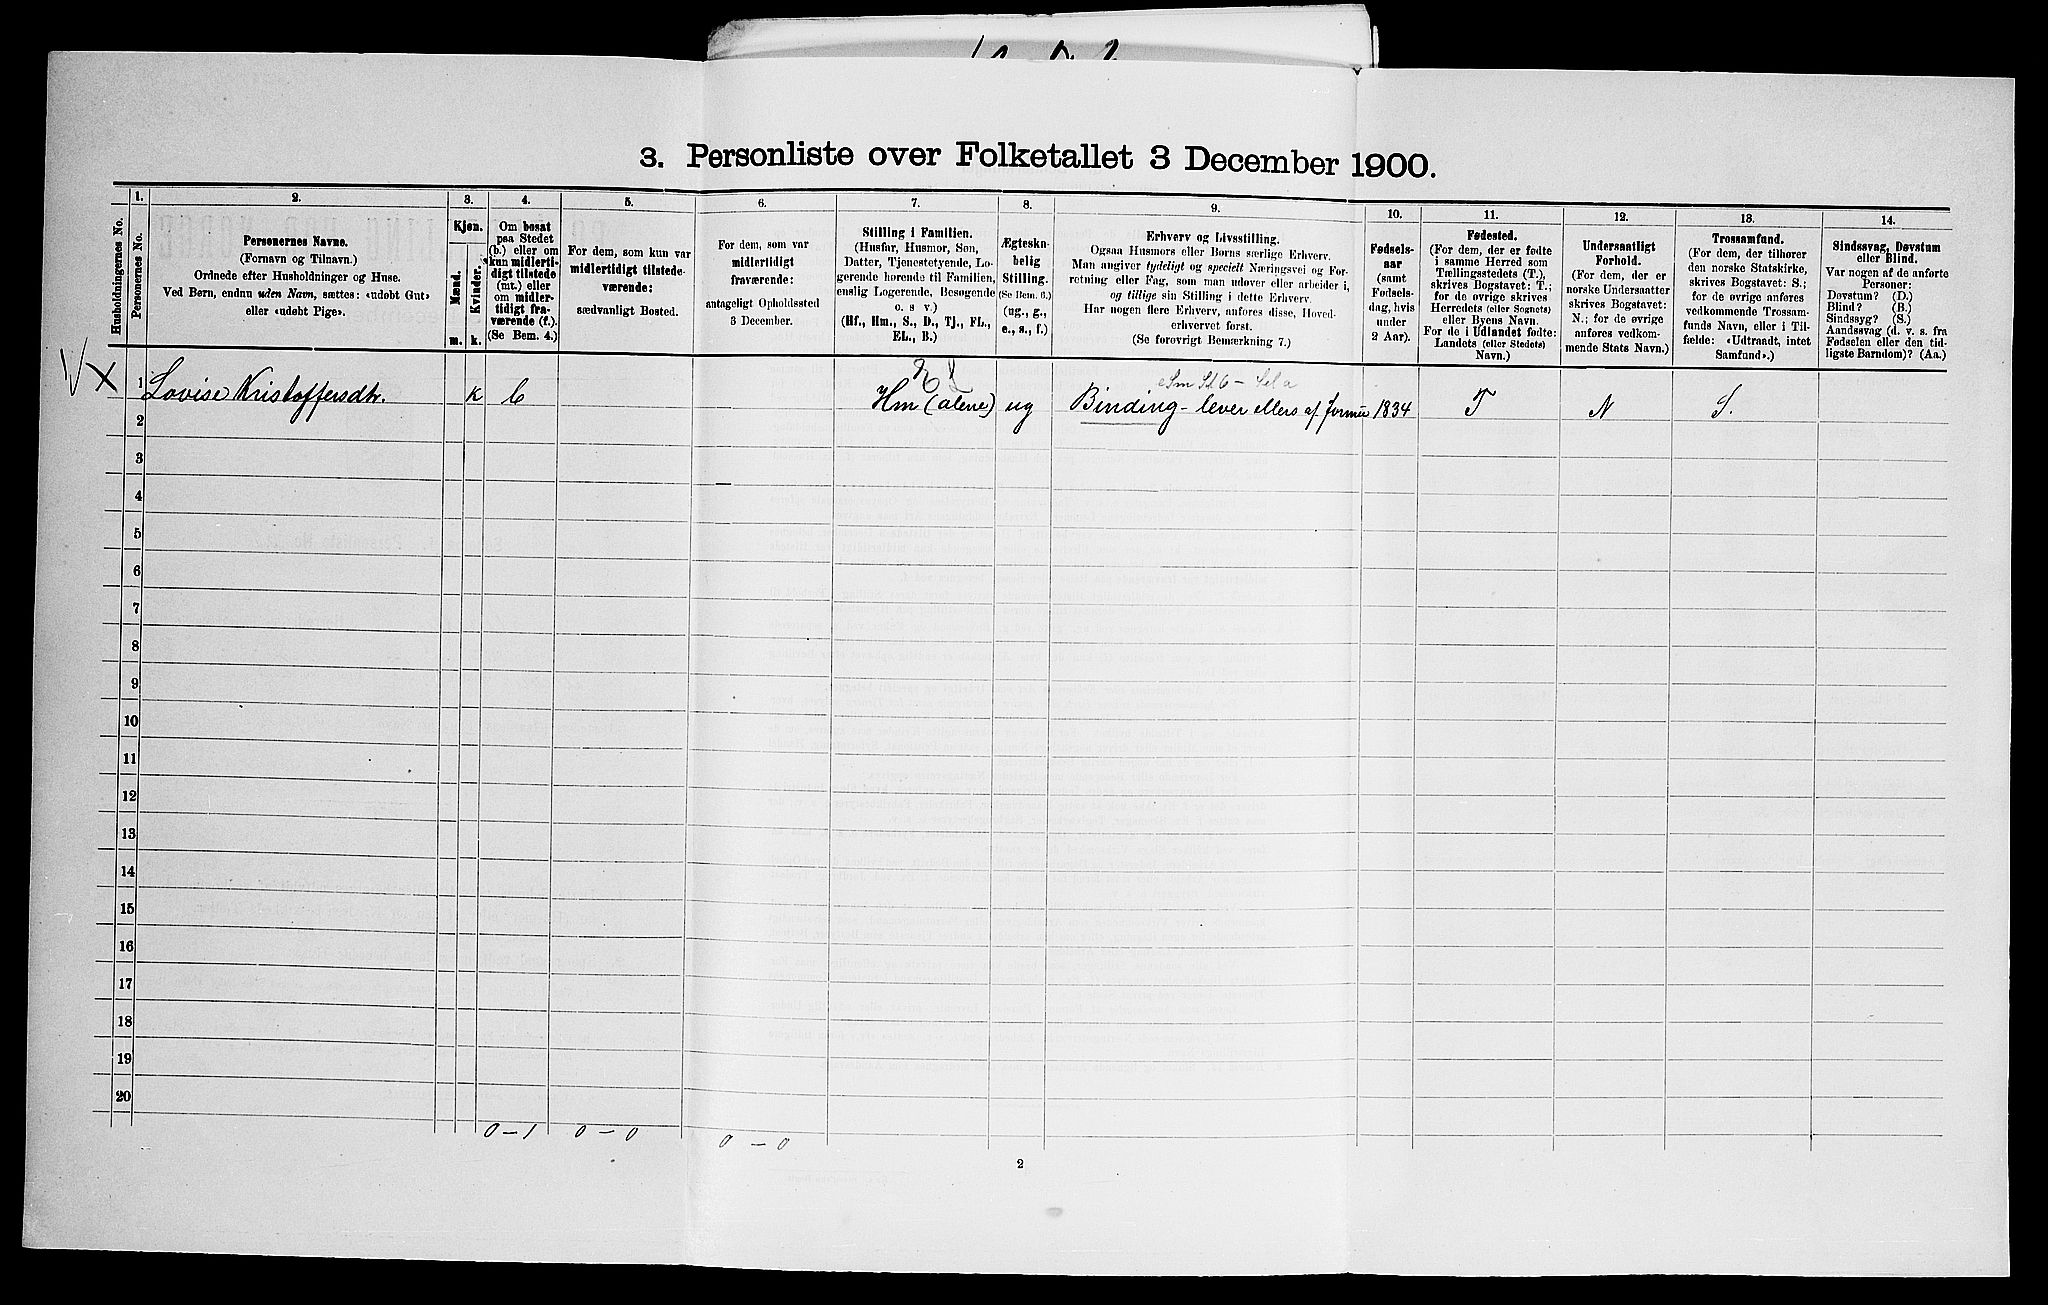 3. Personliste over Folketallet 3 December 1900.
Husholdningernes No.
1.
Personernes No.
2.
Personernes Navne.
(Fornavn og Tilnavn.)
Ordnede efter Husholdninger og Huse.
Ved Børn, endnu uden Navn, sættes: «udøbt Gut»
eller «udøbt Pige».
3.
Kjøn.
Mænd.
Kvinder.
m.
k.
4.
Om bosat
paa Stedet
(b.) eller om
kun midlerti-
digt tilstede
(mt.) eller
om midler-
tidigt fra-
værende (f.).
(Se Bem. 4.)
5.
For dem, som kun var
midlertidigt tilstede-
værende:
sædvanligt Bosted.
6.
For dem, som var
midlertidigt
fraværende:
antageligt Opholdssted
3 December.
7.
Stilling i Familien.
(Husfar, Husmor, Søn,
Datter, Tjenestetyende, Lo-
gerende hørende til Familien,
enslig Logerende, Besøgende
o. s v.)
(Hf., Hm., S., D., Tj., FL.,
EL., B.)
8.
Ægteska-
belig
Stilling.
(Se Bem. 6.)
(ug., g.,
e., s., f.)
9.
Erhverv og Livsstilling.
Ogsaa Husmors eller Børns særlige Erhverv.
Man angiver tydeligt og specielt Næringsvei og For-
retning eller Fag, som man udøver eller arbeider i,
og tillige sin Stilling i dette Erhverv.
Har nogen flere Erhverv, anføres disse, Hoved-
erhvervet først.
(Se forøvrigt Bemærkning 7.)
10.
Fødsels-
aar
(samt
Fødsels-
dag, hvis
under
2 Aar).
11.
Fødested.
(For dem, der er fødte
i samme Herred som
Tællingsstedets (T.),
skrives Bogstavet: T.;
for de øvrige skrives
Herredets (eller Sognets)
eller Byens Navn.
For de i Udlandet fødte:
Landets (eller Stedets)
Navn.)
12.
Undersaatligt
Forhold.
(For dem, der er
norske Undersaatter
skrives Bogstavet:
N.; for de øvrige
anføres vedkom-
mende Stats Navn.)
13.
Trossamfund.
(For dem, der tilhører
den norske Statskirke,
skrives Bogstavet: S.;
for de øvrige anføres
vedkommende Trossam-
funds Navn, eller i Til-
fælde: «Udtraadt, intet
Samfund».)
14.
Sindssvag, Døvstum
eller Blind.
Var nogen af de anførte
Personer:
Døvstum? (D.)
Blind? (B.)
Sindssyg? (S.)
Aandssvag (d. v. s. fra
Fødselen eller den tid-
ligste Barndom)? (Aa.)
X 1 Lovise Kristoffersdtr. k b Hm (alene) ug Binding - lever ellers af formue 1834 T N S.
2
3
4
5
6
7
8
9
10
11
12
13
14
15
16
17
18
19
20
0 – 1 0 – 0 0 – 0
2